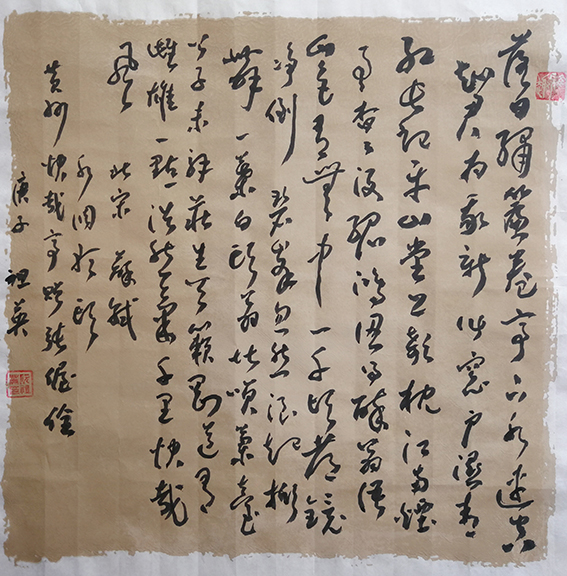 落日繡簾卷亭下水連空
知君为我新作窗户濕青
红長记平山堂上欹枕江南煙
雨杳杳没孤鴻認得醉翁語
山色有無中一千頃都鏡
净倒碧峰忽然浪起掀
舞一葉白头翁堪笑蘭台
公子未解莊生天籟刚道有
雌雄一點浩然氣千里快哉
风 北宋 蘇軾
水调歌头
黄州快哉亭贈張偓佺
庚子 祖英